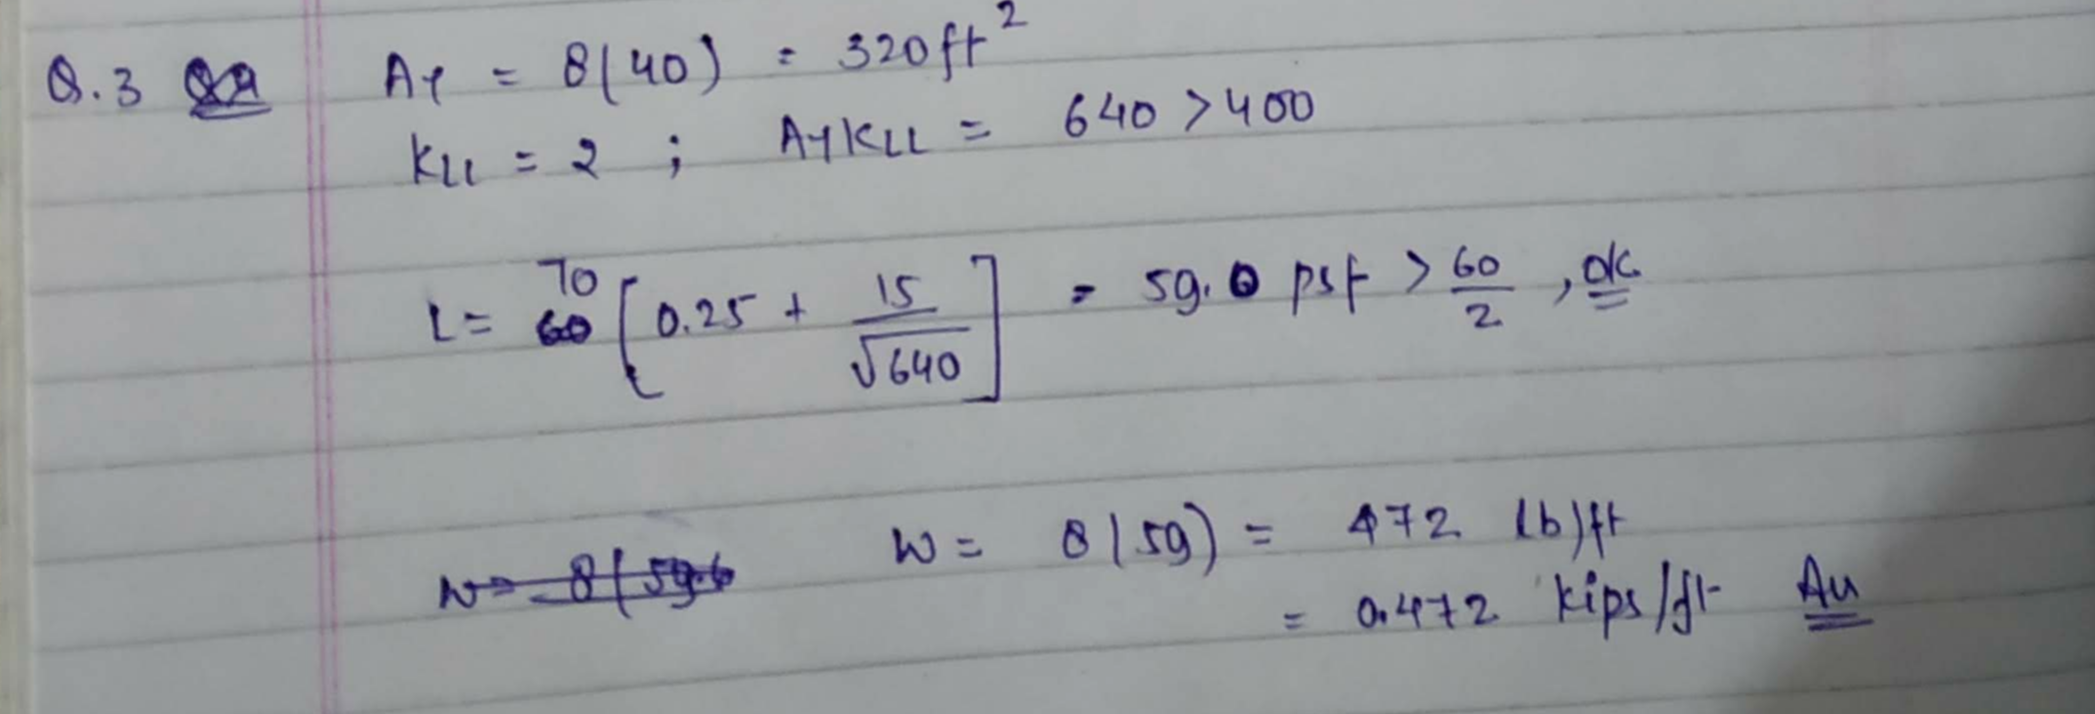 Q.3 At = 8(40) = 320 ft²
KLL = 2 ; AtKLL = 640 > 400
70
L = 60 [0.25 + 15/√640] = 59.0 psf > 60/2 , ok
w = 8(59.6 w = 8(59) = 472 lb/ft
= 0.472 kips/ft Au